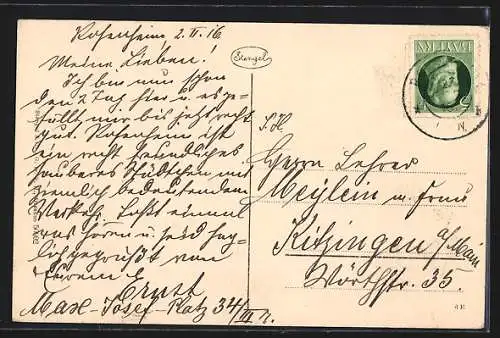 Rosenheim 2.II.16
Meine Lieben!
Ich bin nun schon
den 2. Tag hier u. es ge-
fällt mir bis jetzt recht
gut. Rosenheim ist
ein recht freundliches
sauberes Städtchen mit
ziemlich bedeutendem
Verkehr. Laßt einmal
was hören u. seid herz-
lich gegrüßt von
Eurem
Ernst
Max-Josef-Platz 34/III r.
Stengel
BAYERN
S. H.
Herrn Lehrer
Meylein m. Frau
Kitzingen a/Main
Wörthstr. 35.